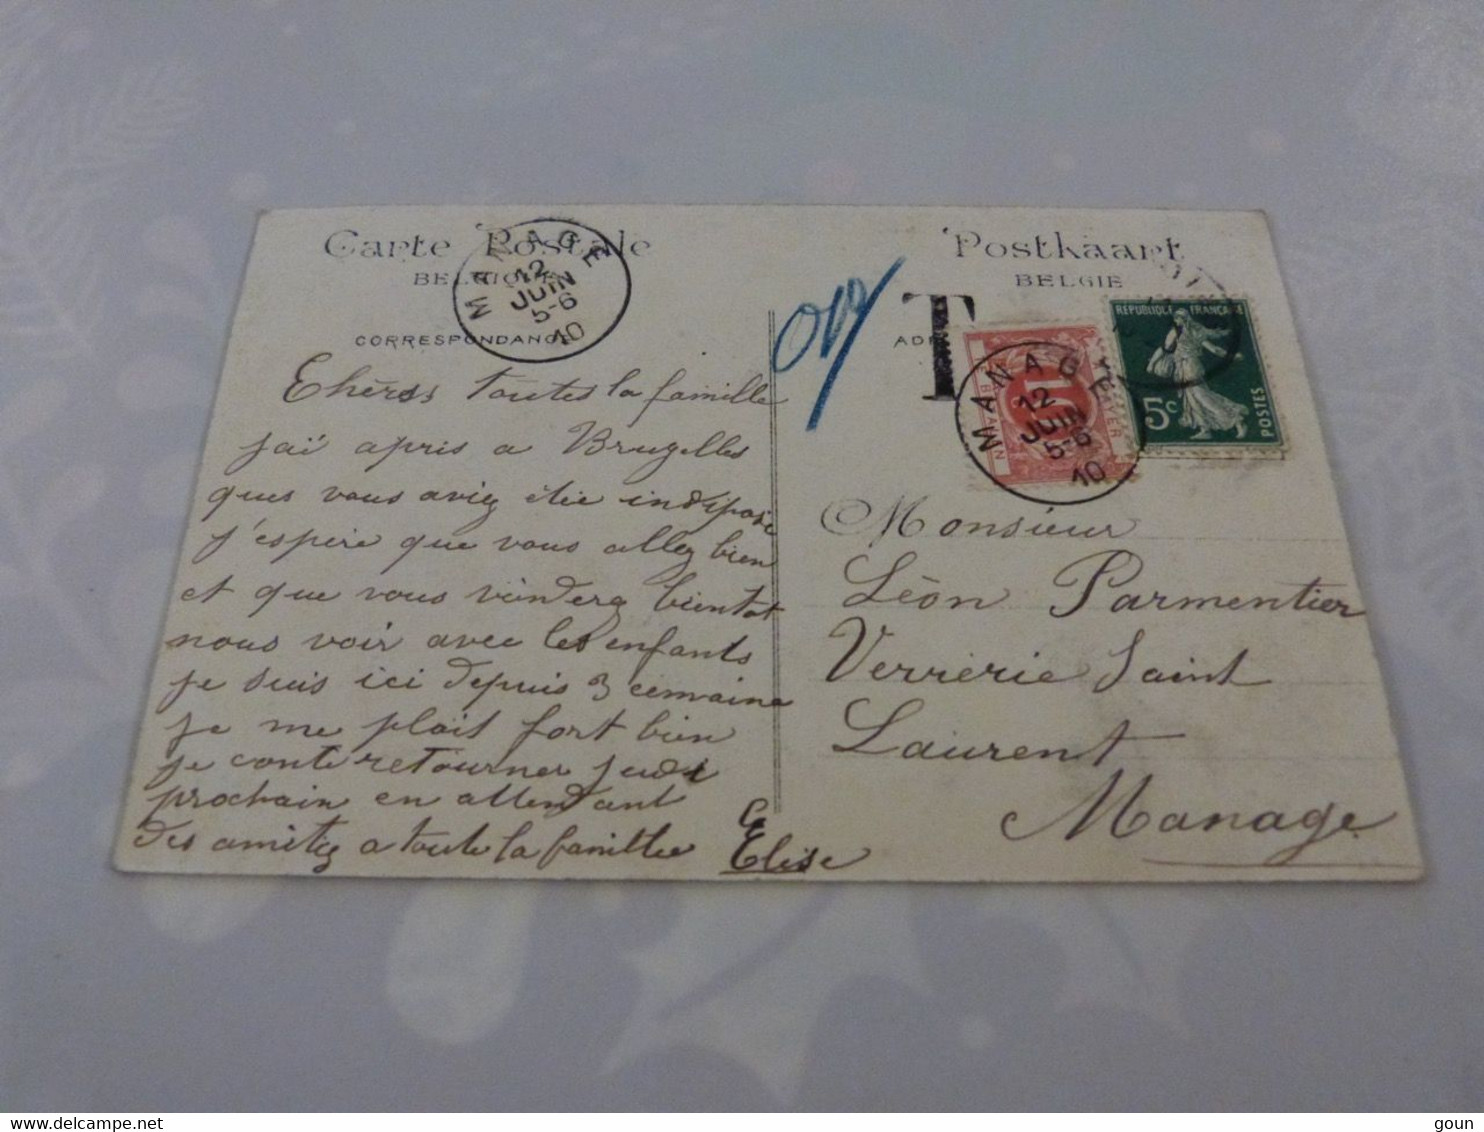 Carte Postale
BELGIQUE
CORRESPONDANCE
MANAGE
12
JUIN
5-6
10
Chèrs toutes la famille
jai apris a Brugelles
ques vous aviez étée indispose
j'espère que vous allez bien
et que vous vienderz bientot
nous voir avec les enfants
je suis ici depuis 3 cemaine
je me plais fort bien
je conte retourner jeudi
prochain en attendant
des amitez a toute la famillee
Elise
Postkaart
BELGIE
T
10
MANAGE
12
JUIN
5-6
10
REPUBLIQUE FRANCAISE
5c
POSTES
Monsieur
Lèon Parmentier
Verrerie Saint
Laurent
Manage
www.delcampe.net
goun